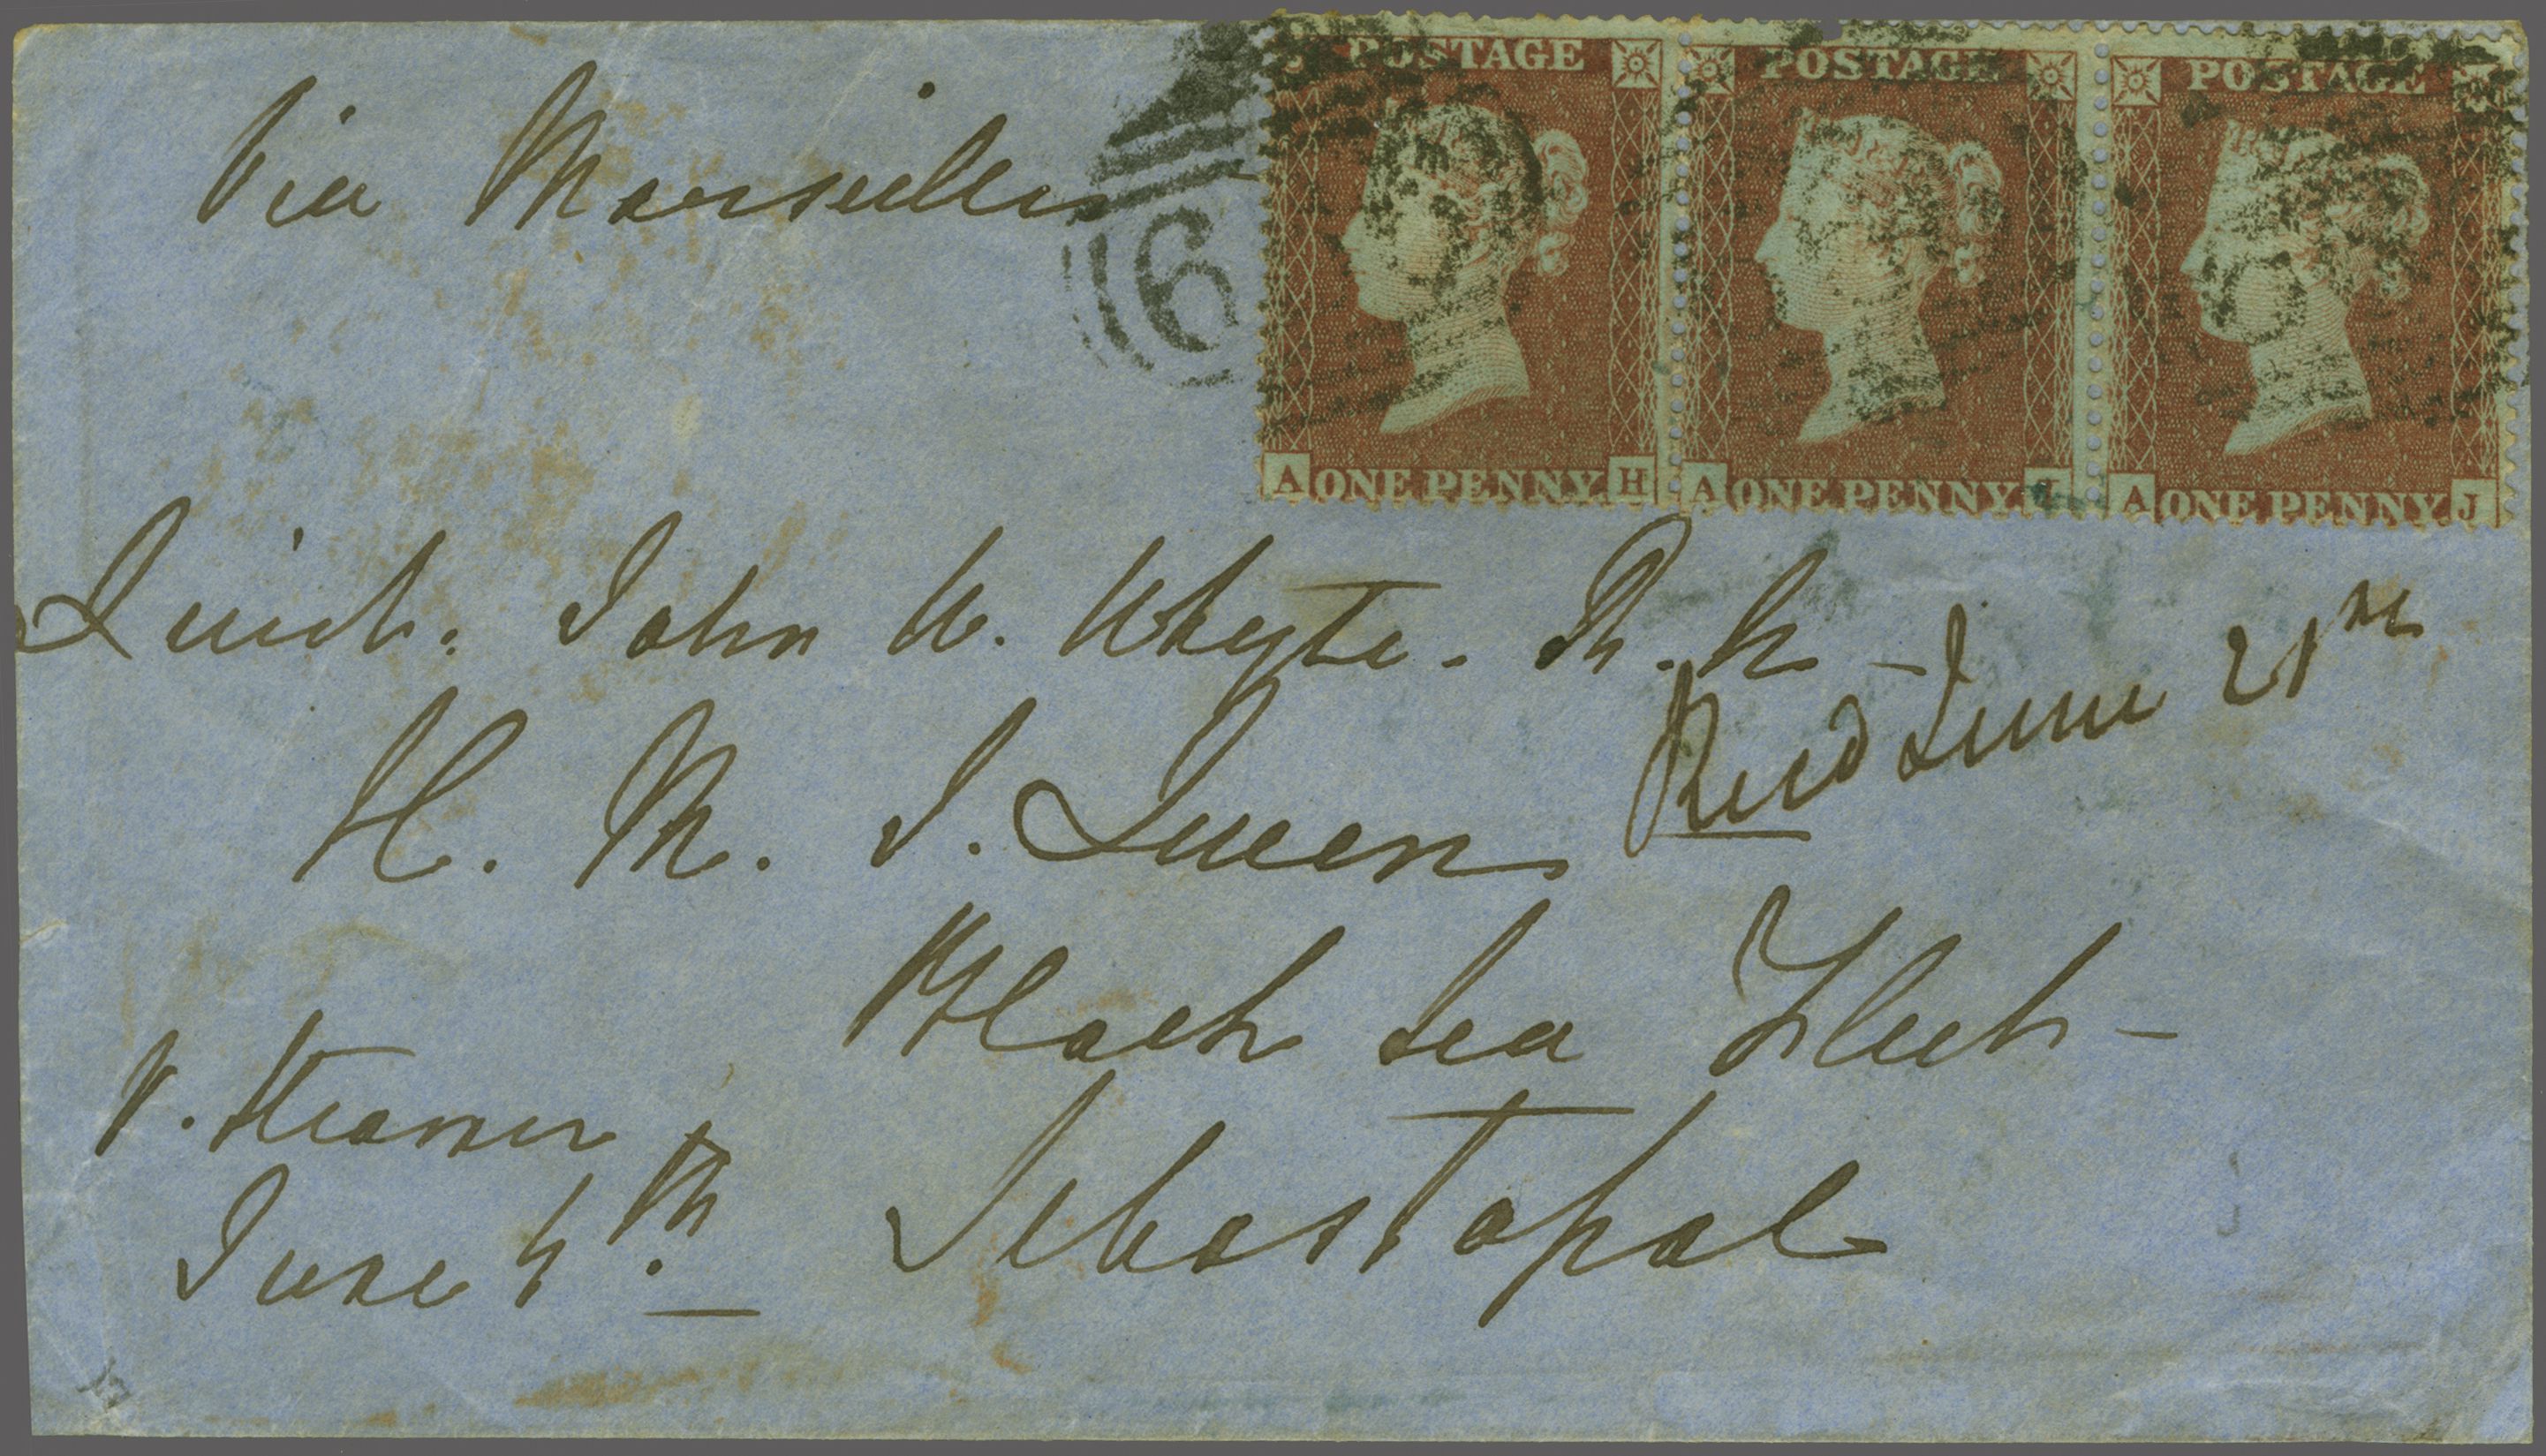 Via Marseilles
6
POSTAGE POSTAGE POSTAGE
A ONE PENNY H A ONE PENNY I A ONE PENNY J
Lieut. John W. Whyte. R. N
Recd June 21st
H. M. S. Queen
Black Sea Fleet
Sebastopol
V. Steamer
June 4th.